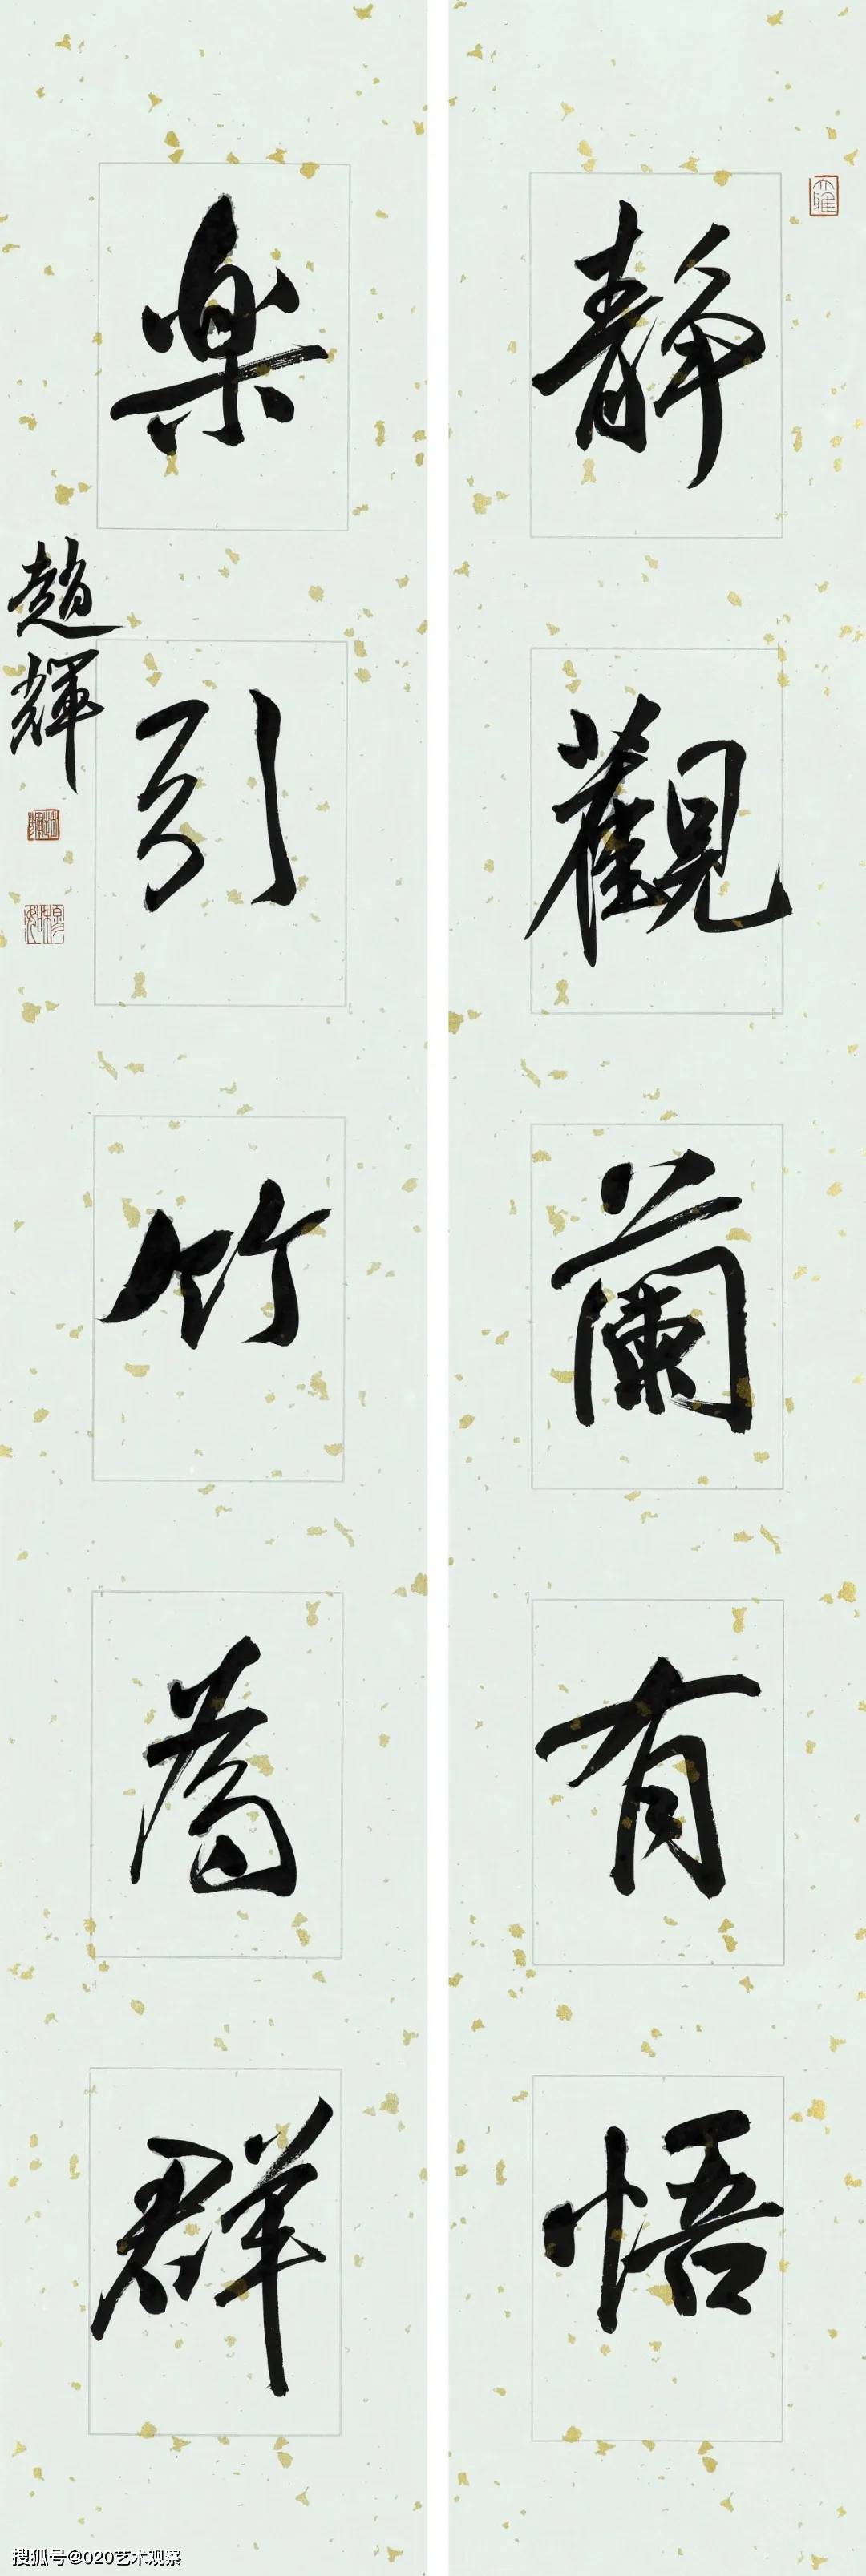 靜觀蘭有悟
楽引竹為群
趙輝
搜狐号@020艺术观察